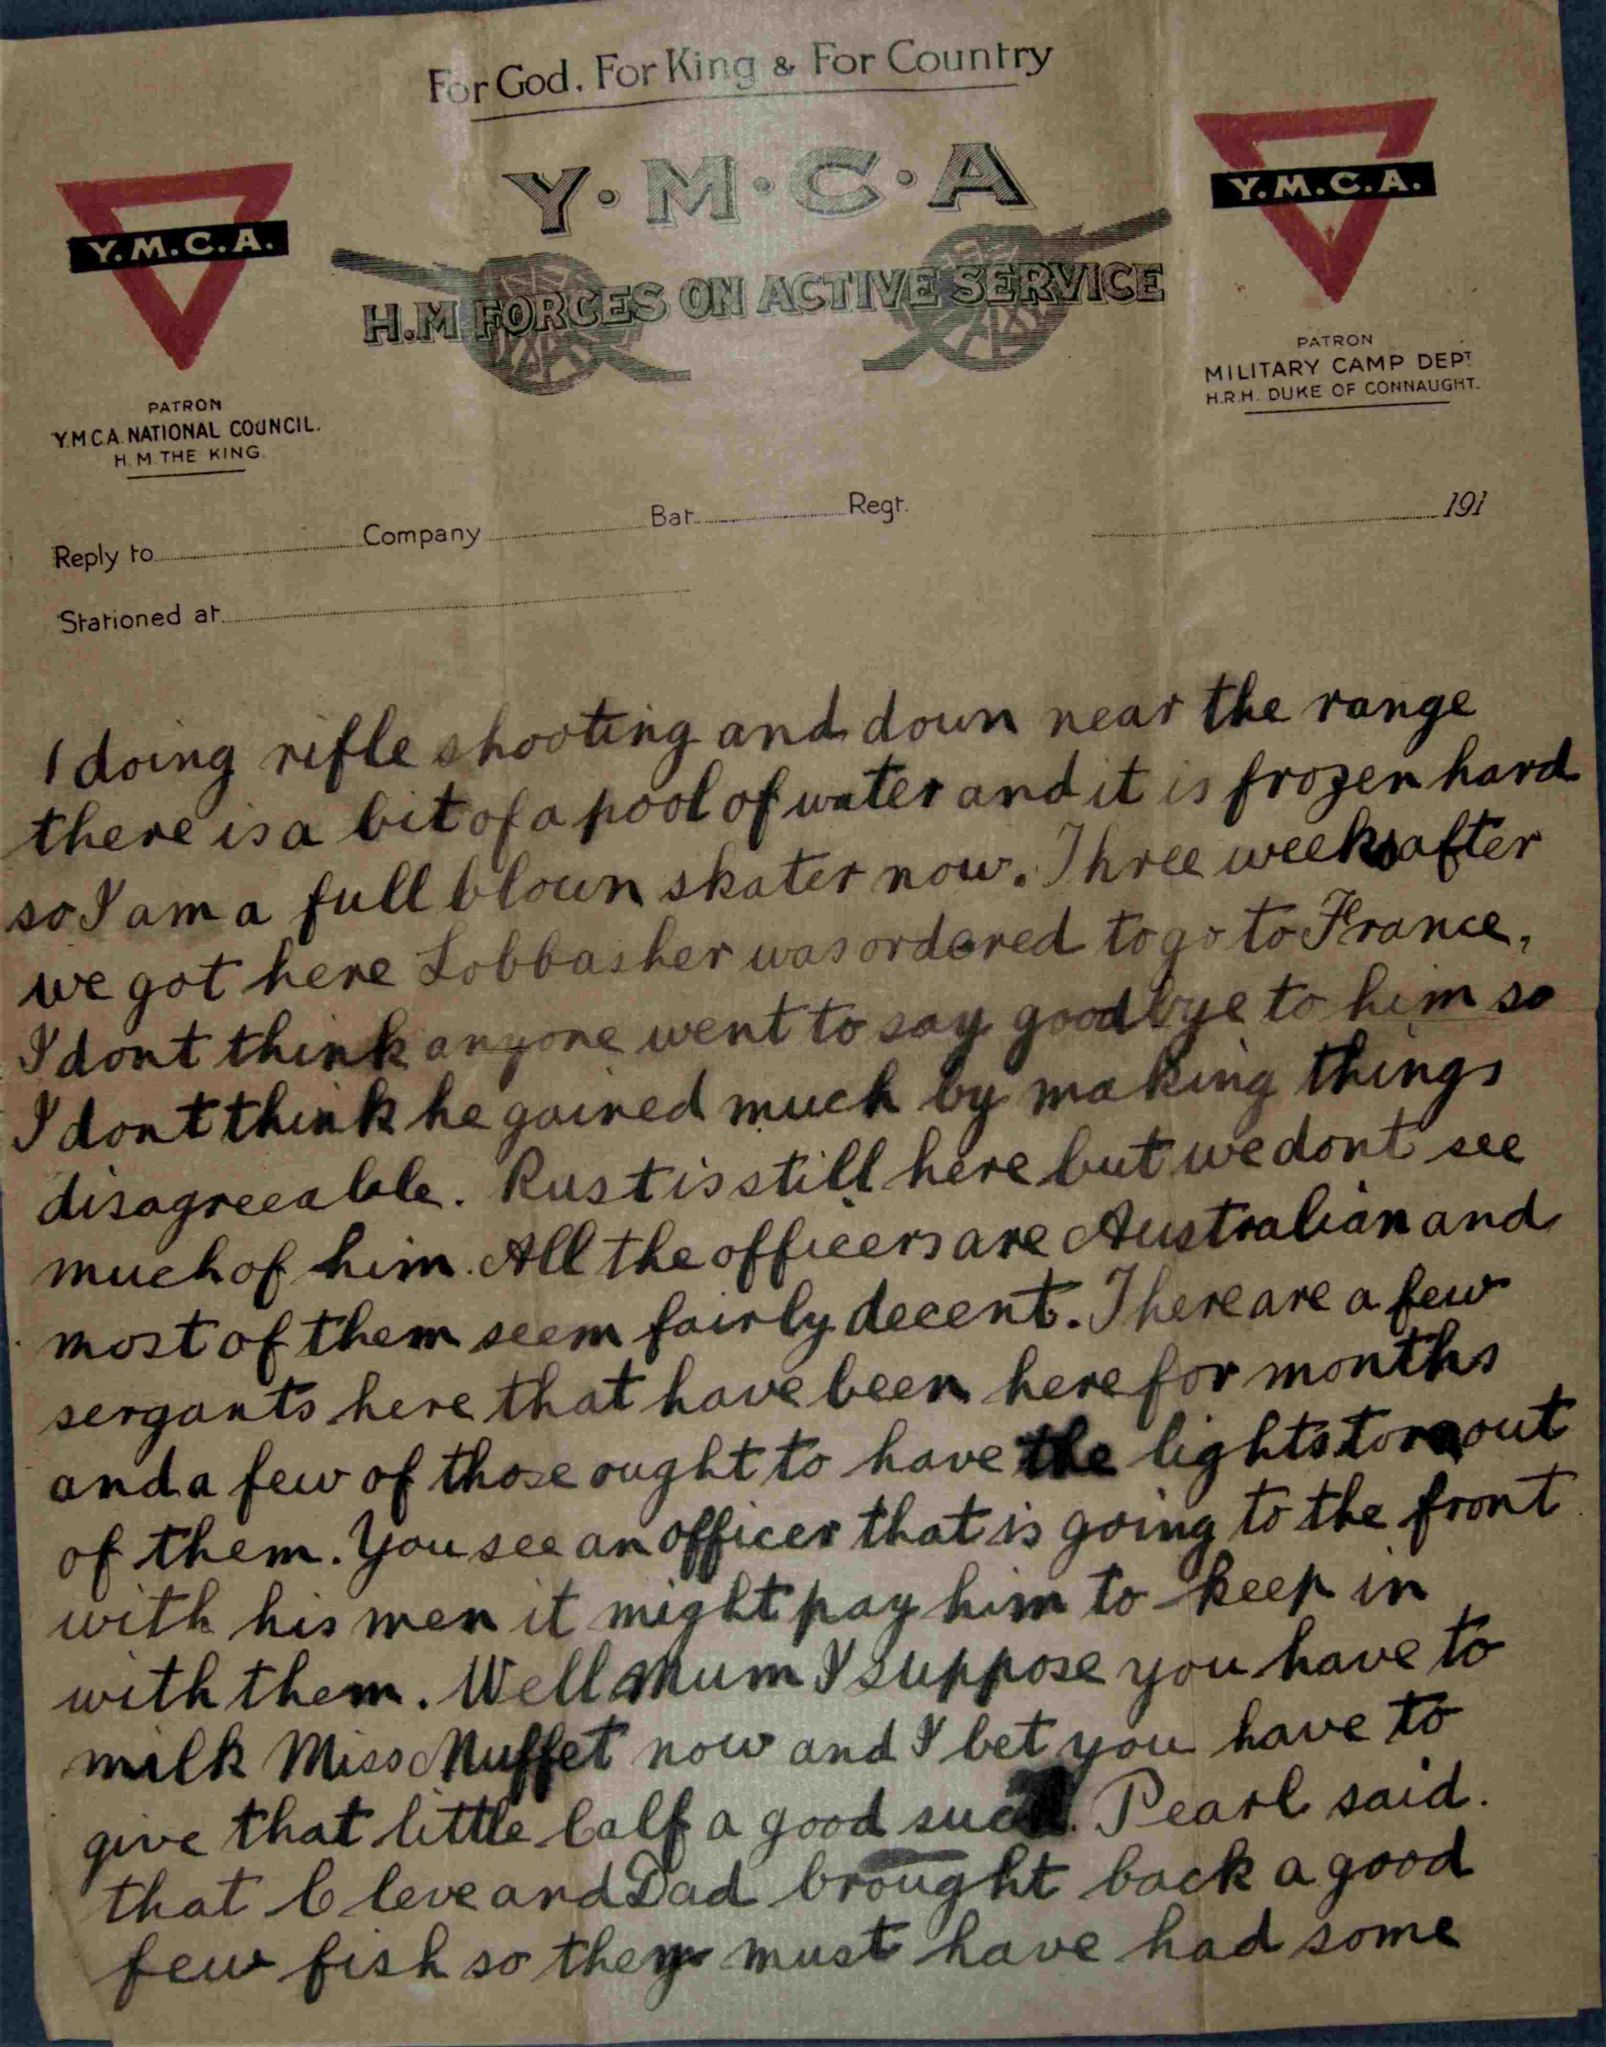 For God, For King & For Country
Y·M·C·A
Y.M.C.A.
Y.M.C.A.
H.M FORCES ON ACTIVE SERVICE
PATRON
Y.M.C.A. NATIONAL COUNCIL.
H.M. THE KING
PATRON
MILITARY CAMP DEPT
H.R.H. DUKE OF CONNAUGHT.
Reply to Company Bat. Regt. 191
Stationed at
doing rifle shooting and down near the range
there is a bit of a pool of water and it is frozen hard
so I am a full blown skater now. Three weeks after
we got here Lobbasher was ordered to go to France,
I dont think anyone went to say goodbye to him so
I dont think he gained much by making things
disagreeable. Rust is still here but we dont see
much of him. All the officers are Australian and
most of them seem fairly decent. There are a few
sergants here that have been here for months
and a few of those ought to have the lights torn out
of them. You see an officer that is going to the front
with his men it might pay him to keep in
with them. Well Mum I suppose you have to
milk Miss Muffet now and I bet you have to
give that little calf a good Pearl said.
that Cleve and Dad brought back a good
few fish so they must have had some